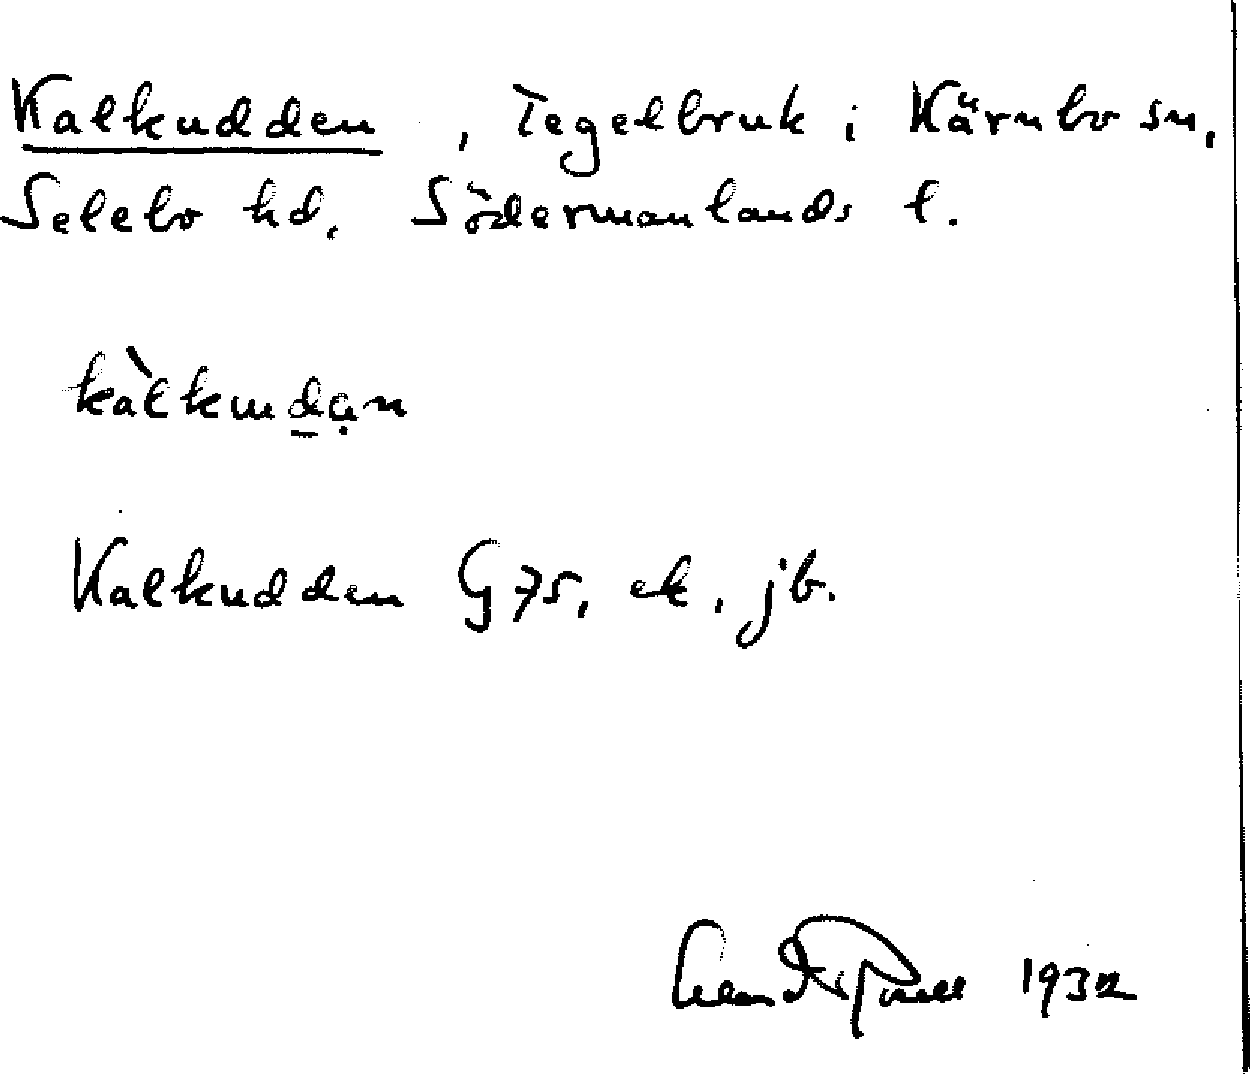 Kalkudden, Tegelbruk i Kärnbo sn,
Selebo hd, Södermanlands l.
Kalkudden G75, ek, jb.
1932